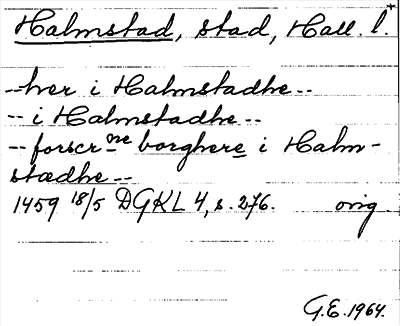 Halmstad, stad, Hall. l.+
-- her i Halmstadhe --
-- i Halmstadhe --
-- forscrne borghere i Halm-
stædhe --
1459 18/5 DGKL 4, s. 276. orig.
G.E. 1964.